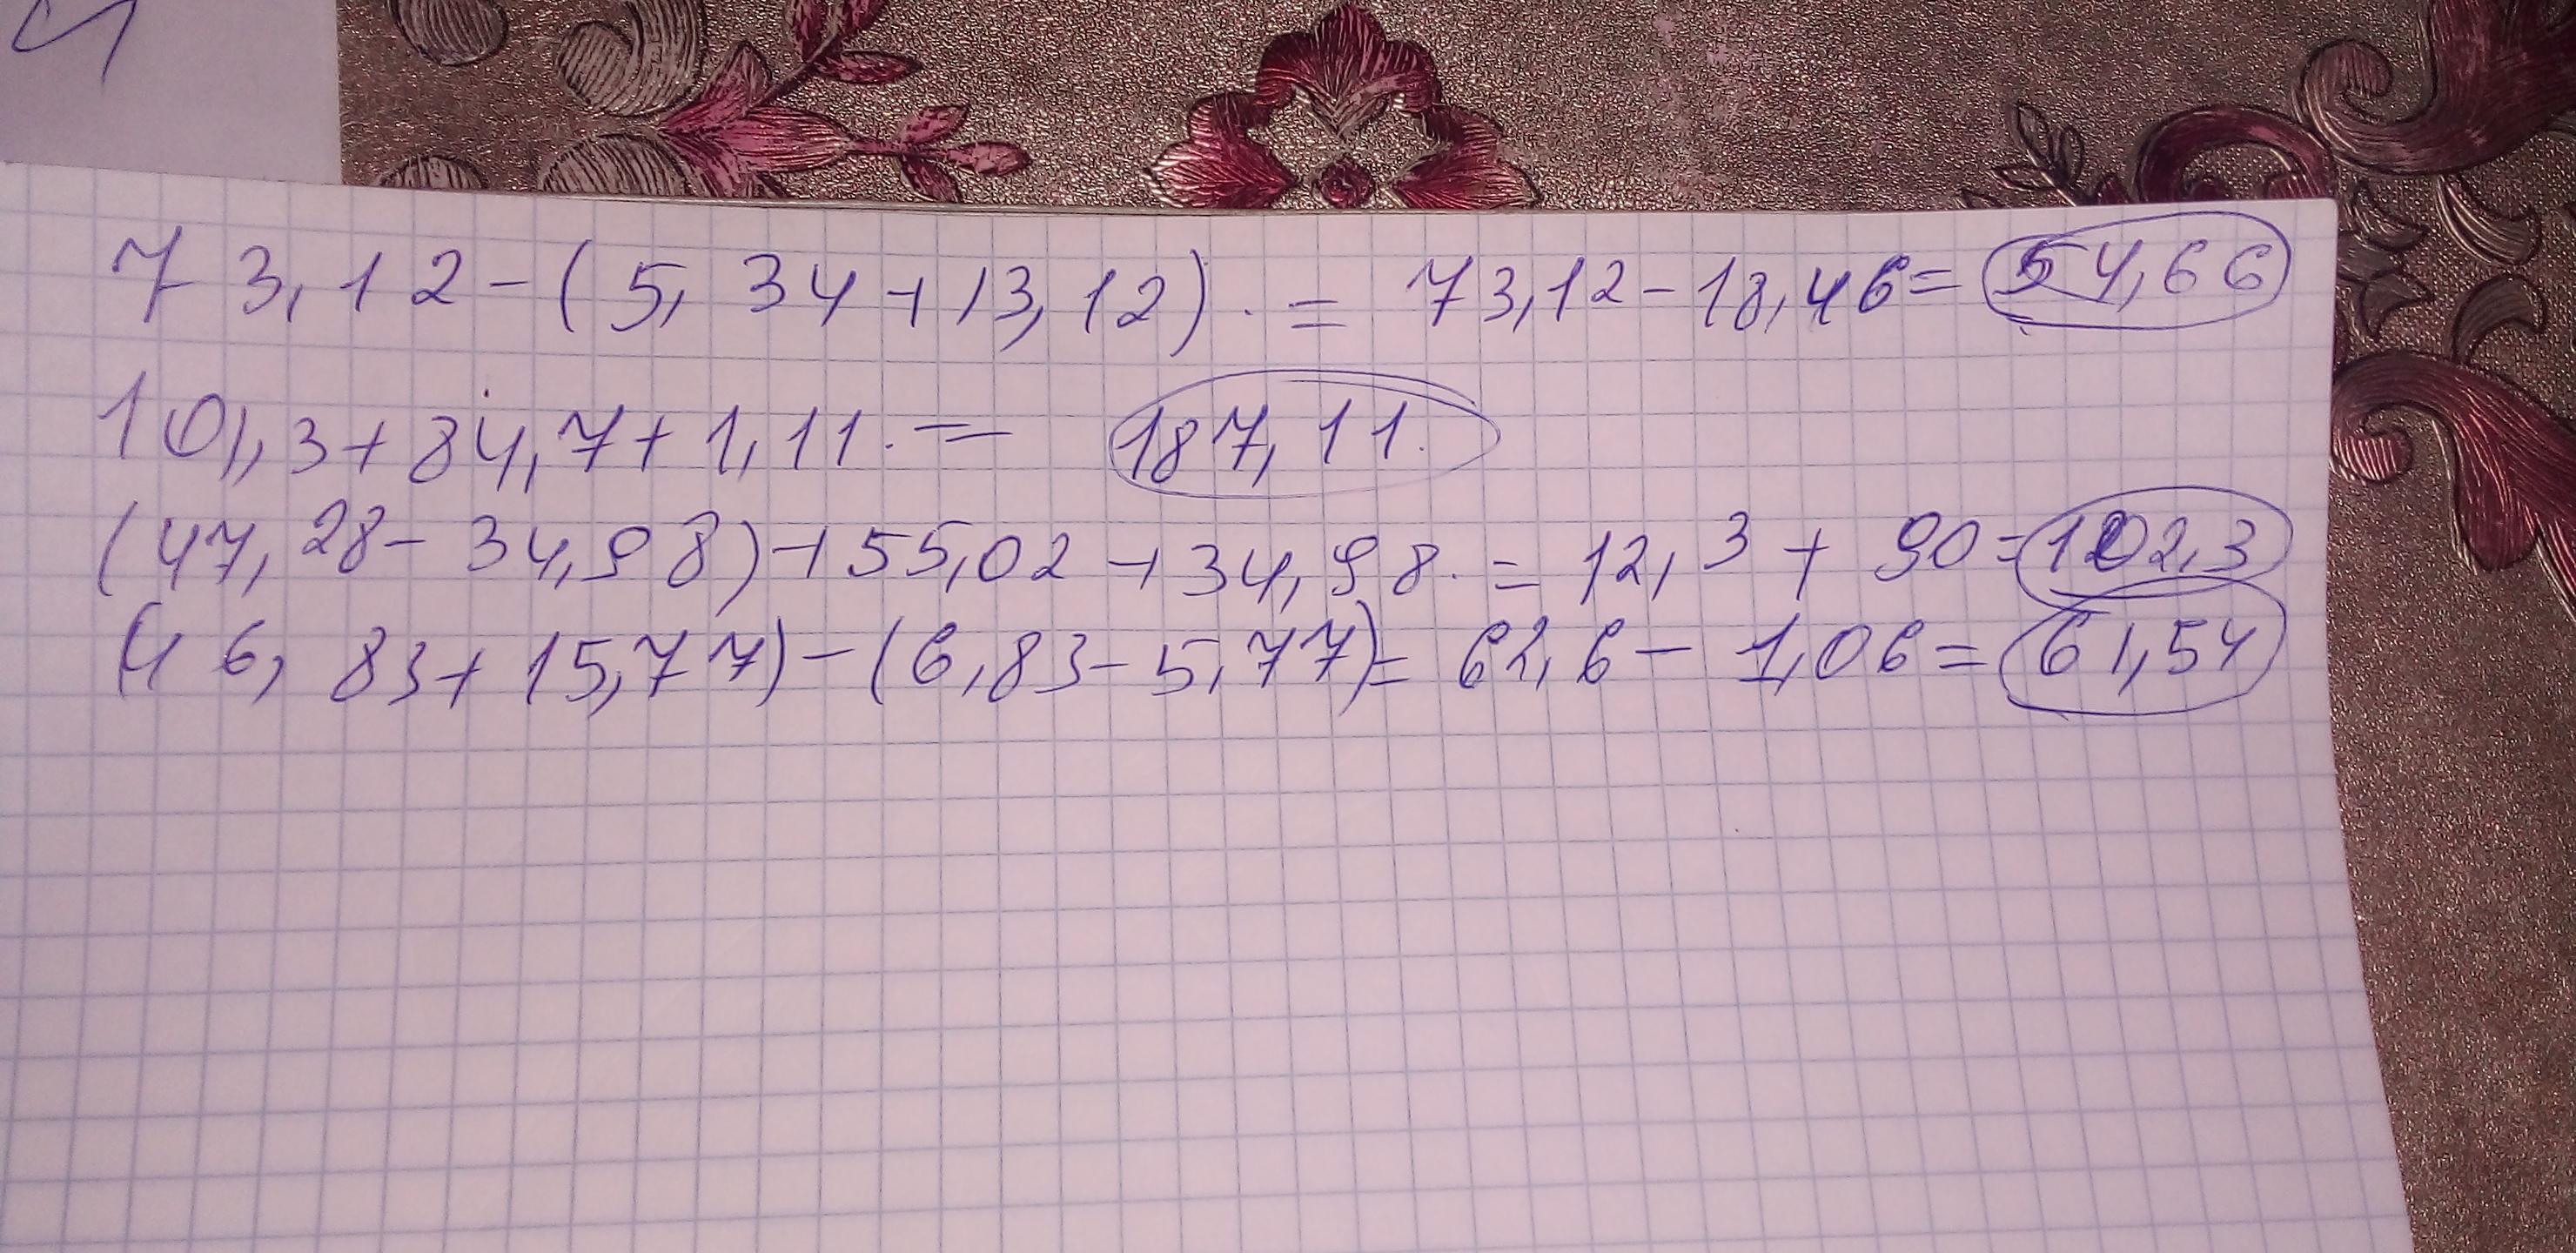 73,12-(5,34+13,12). = 73,12-18,46= 54,66
101,3+84,7+1,11. = 187,11.
(47,28-34,98)+55,02+34,98. = 12,3+90=102,3
(46,83+15,77)-(6,83-5,77)= 62,6-1,06=61,54